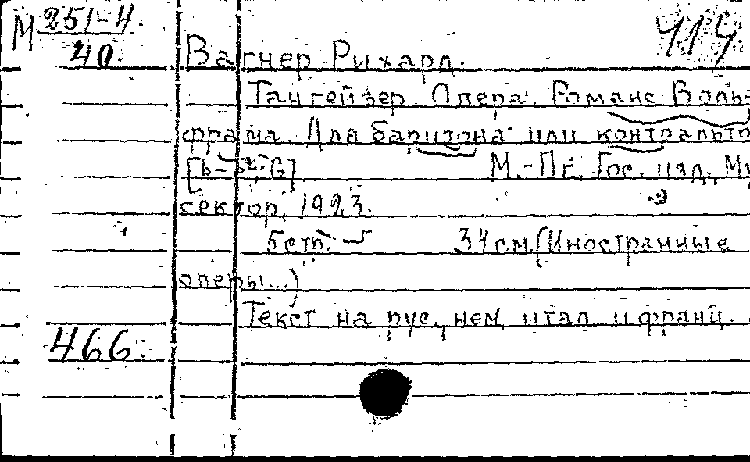 М 251-4
40
414
Вагнер Рихард.
Тангейзер. Опера. Романс Воль
фрама. Для баритона или контральто
М.-Пг. Гос. изд. Му
сектор, 1923.
5 стр. 34 см. (Иностранные
оперы...)
Текст на рус., нем, итал. и франц.
466.